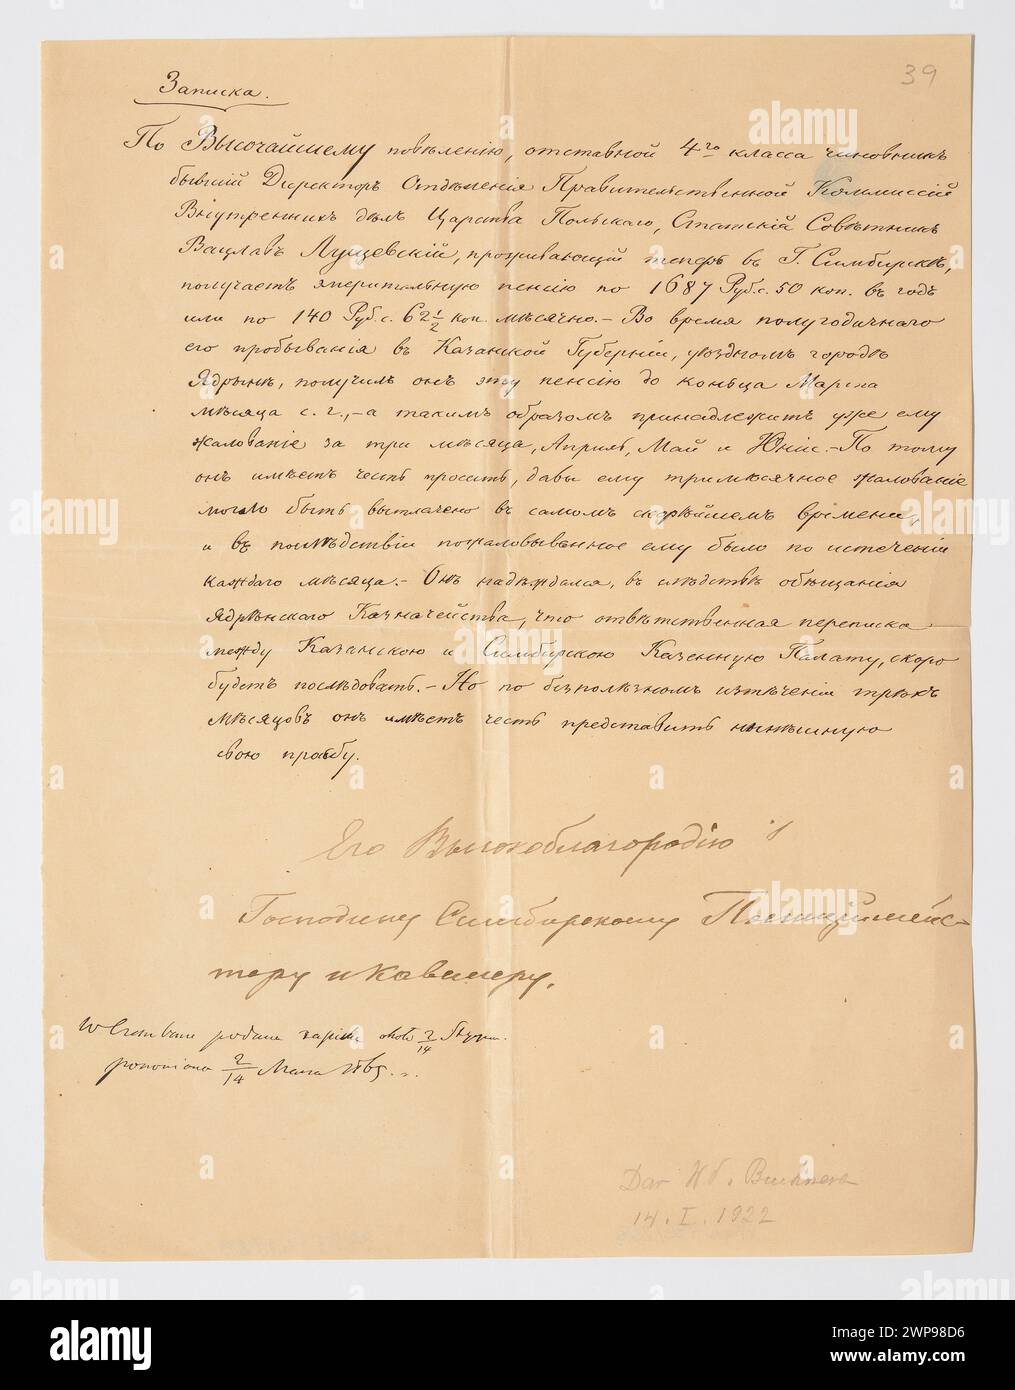 39
Записка.
По Высочайшему повѣленію, отставной 4го класса чиновникъ
бывшій Директоръ Отдѣленія Правительственной Коммиссіи
Внутреннихъ дѣлъ Царства Польскаго, Статскій Совѣтникъ
Вацлавъ Лущевскій, проживающій теперь въ Г. Симбирскѣ,
получаетъ эмеритальную пенсію по 1687 Руб. с. 50 коп. въ годъ
или по 140 Руб. с. 62 1/2 коп. мѣсячно. – Во время полугодичнаго
его пробыванія въ Казанской Губерніи, уѣздномъ городѣ
Ядрынѣ, получилъ онъ эту пенсію до коньца Марта
мѣсяца с. г., – а такимъ образомъ принадлежитъ уже ему
жалованіе за три мѣсяца, Апрель, Май и Юнь. – По тому
онъ имѣетъ честь просить, дабы ему тримѣсячное жалованіе
могло быть выплачено въ самомъ скорѣйшемъ времени,
и въ послѣдствіи пожаловыванное ему было по истеченіи
каждаго мѣсяца. – Онъ надѣждался, въ слѣдствѣ обѣщанія
Ядрынскаго Казначейства, что отвѣтственная переписка
между Казанскою и Симбирскою Казенную Палату, скоро
будетъ послѣдовать. – Но по безполѣзномъ изтѣченіи трѣхъ
мѣсяцовъ онъ имѣетъ честь представить нынѣшнюю
свою прозьбу.
Его Высокоблагородію
Господину Симбирскому Полицiймейс-
теру и Кавалеру.
podana około 2/14
ponowiona 2/14
Dar Wł. Buchnera
14. I. 1922
alamy
a
alamy
2WP98D6
www.alamy.com